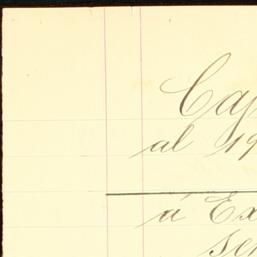 Cap
al 19
á Ex
ser